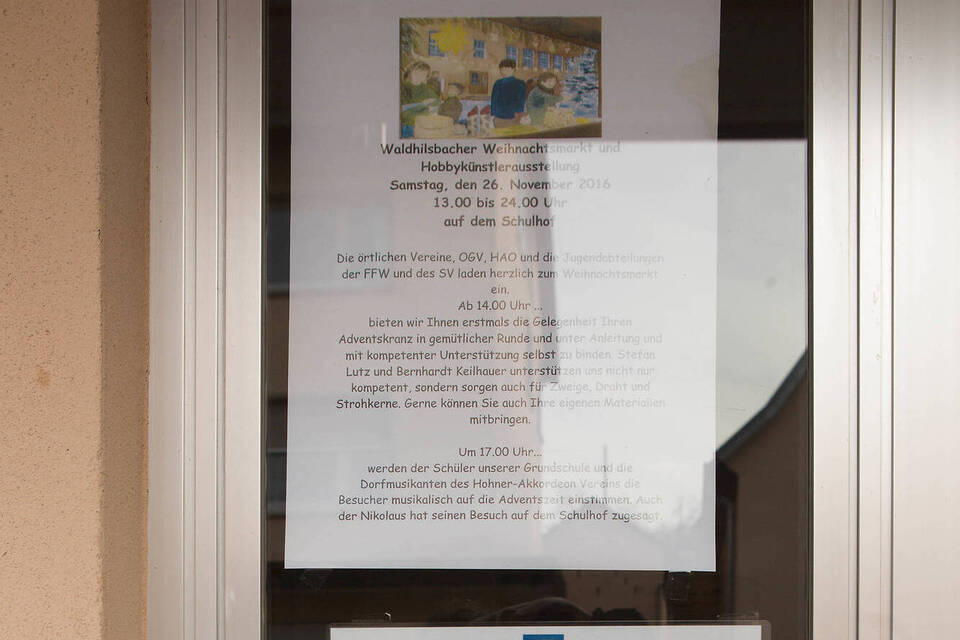 Waldhilsbacher Weihnachtsmarkt und
Hobbykünstlerausstellung
Samstag, den 26. November 2016
13.00 bis 24.00 Uhr
auf dem Schulhof
Die örtlichen Vereine, OGV, HAO und die Jugendabteilungen
der FFW und des SV laden herzlich zum Weihnachtsmarkt
ein.
Ab 14.00 Uhr ...
bieten wir Ihnen erstmals die Gelegenheit Ihren
Adventskranz in gemütlicher Runde und unter Anleitung und
mit kompetenter Unterstützung selbst zu binden. Stefan
Lutz und Bernhardt Keilhauer unterstützen uns nicht nur
kompetent, sondern sorgen auch für Zweige, Draht und
Strohkerne. Gerne können Sie auch Ihre eigenen Materialien
mitbringen.
Um 17.00 Uhr...
werden der Schüler unserer Grundschule und die
Dorfmusikanten des Hohner-Akkordeon Vereins die
Besucher musikalisch auf die Adventszeit einstimmen. Auch
der Nikolaus hat seinen Besuch auf dem Schulhof zugesagt.